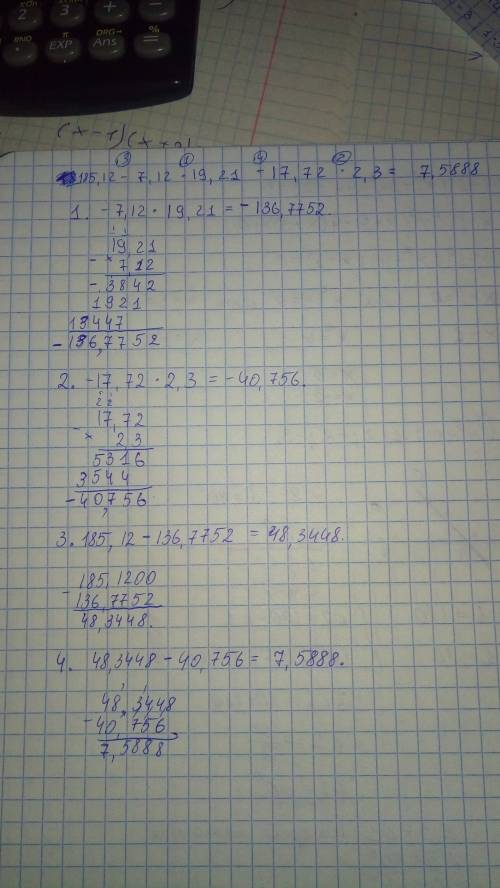 2 3 + −
EXP Ans =
%
(x-
③ ① ④ ②
185,12 - 7,12 · 19,21 - 17,72 · 2,3 = 7,5888
1. -7,12 · 19,21 = -136,7752.
19,21
- × 7,12
- 3842
1921
13447
- 136,7752
2. -17,72 · 2,3 = -40,756.
2 2
- 17,72
× 2 3
5316
3544
- 40,756
3. 185,12 - 136,7752 = 48,3448.
- 185,1200
136,7752
48,3448.
4. 48,3448 - 40,756 = 7,5888.
48,3448
- 40,756
7,5888